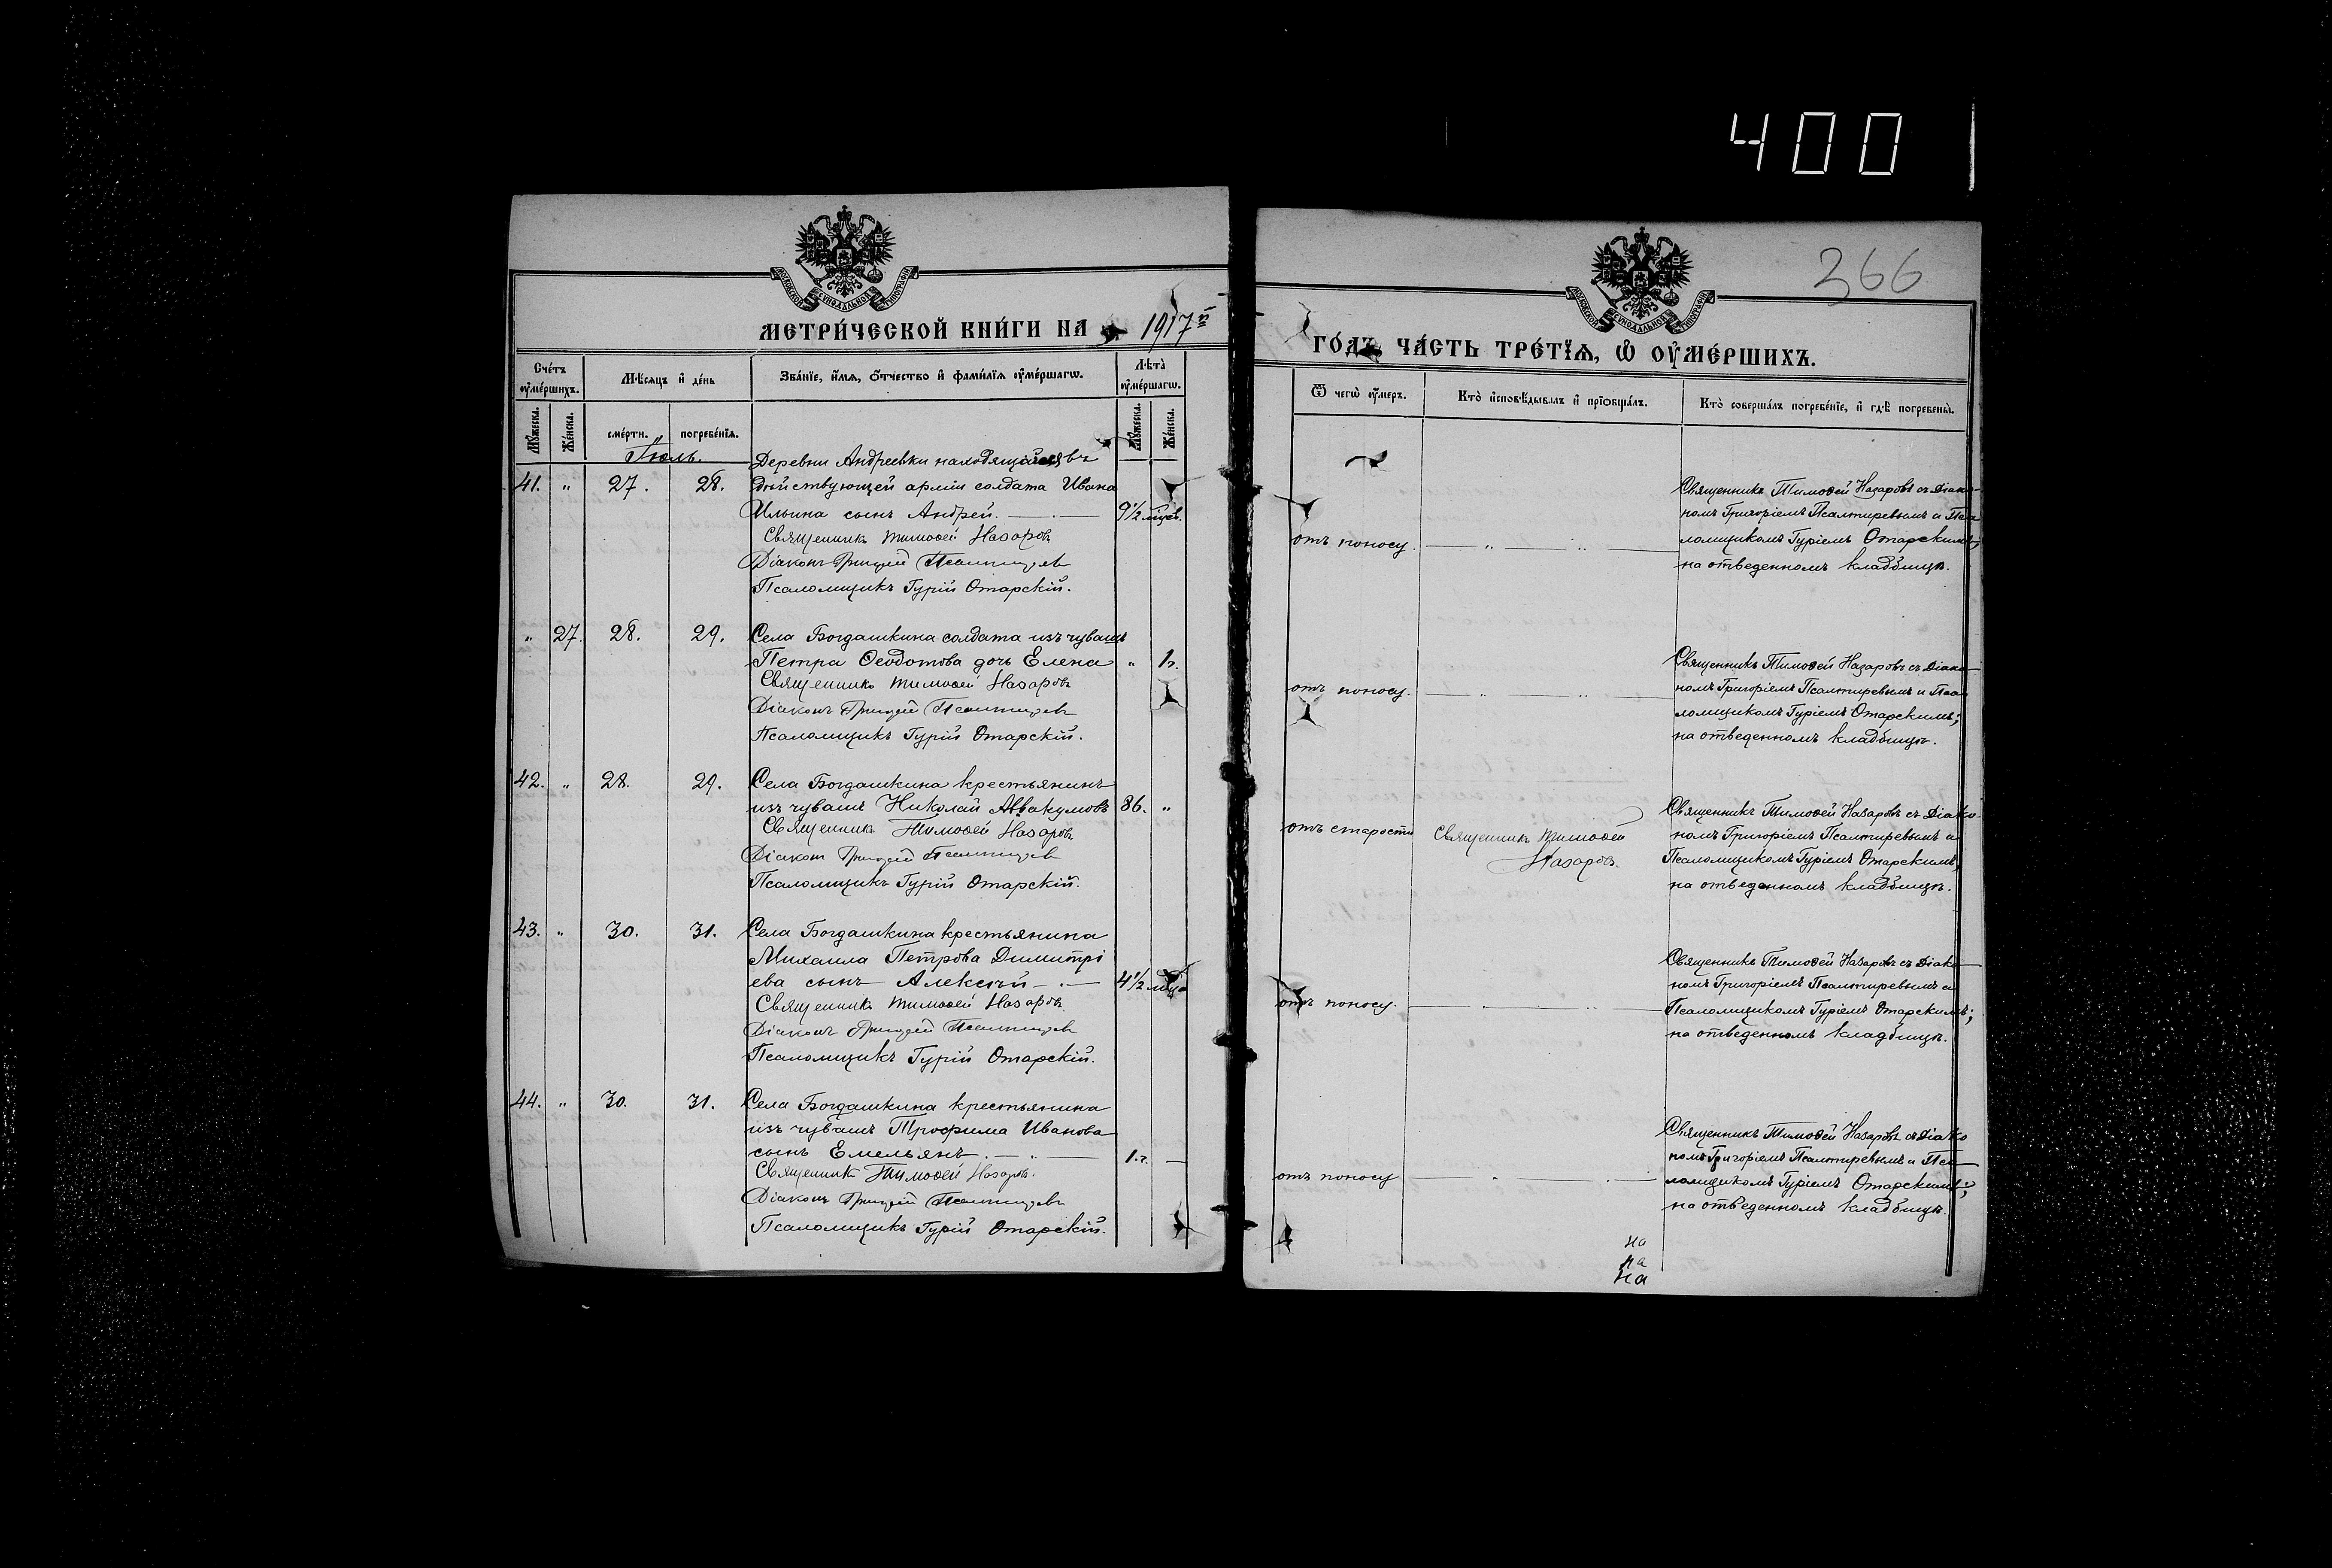 400
366
МОСКОВСКОЙ СѴНОДАЛЬНОЙ ТИПОГРАФІИ
МОСКОВСКОЙ СѴНОДАЛЬНОЙ ТИПОГРАФІИ
МЕТРИ́ЧЕСКОЙ КНИ́ГИ НА 1917й
ГО́ДЪ ЧА́СТЬ ТРЕ́ТЇѦ, Ѡ҆ ОУ҆МЕ́РШИХЪ.
Сче́тъ оу҆ме́ршихъ.
Мѣ́сѧцъ и҆ де́нь
Зва́нїе, и҆́мѧ, ѻ҆́тчество и҆ фами́лїѧ оу҆ме́ршагѡ.
Лѣ́та оу҆ме́ршагѡ.
Ѿ чегѡ̀ оу҆́меръ.
Кто̀ и҆сповѣ́дывалъ и҆ прїѡбща́лъ.
Кто̀ соверша́лъ погребе́нїе, и҆ гдѣ̀ погребены̀.
Мꙋ́жеска.
Же́нска.
сме́рти.
погребе́нїѧ.
Мꙋ́жеска.
Же́нска.
Іюль.
Деревни Андреевки находящійся въ
41. " 27. 28. дѣйствующей арміи солдата Ивана
Ильина сынъ Андрей. 9½ мцев.
Священникъ Тимоѳей Назаровъ
Діаконъ Григорій Псалтиревъ
Псаломщикъ Гурій Отарскій.
отъ поносу.
Священникъ Тимоѳей Назаровъ съ Діако-
номъ Григоріемъ Псалтиревымъ и Пса
ломщикомъ Гуріемъ Отарскимъ;
на отведенномъ кладбищѣ.
" 27. 28. 29. Села Богдашкина солдата изъ чувашъ
Петра Ѳеодотова дочь Елена " 1г.
Священникъ Тимоѳей Назаровъ
Діаконъ Григорій Псалтиревъ
Псаломщикъ Гурій Отарскій.
отъ поносу.
Священникъ Тимоѳей Назаровъ съ Діако-
номъ Григоріемъ Псалтиревымъ и Пса
ломщикомъ Гуріемъ Отарскимъ;
на отведенномъ кладбищѣ.
42. " 28. 29. Села Богдашкина крестьянинъ
изъ чувашъ Николай Аввакумовъ 86. "
Священникъ Тимоѳей Назаровъ
Діаконъ Григорій Псалтиревъ
Псаломщикъ Гурій Отарскій.
отъ старости
Священникъ Тимоѳей
Назаровъ.
Священникъ Тимоѳей Назаровъ съ Діако-
номъ Григоріемъ Псалтиревымъ и
Псаломщикомъ Гуріемъ Отарскимъ;
на отведенномъ кладбищѣ.
43. " 30. 31. Села Богдашкина крестьянина
Михаила Петрова Димитрі
ева сынъ Алексѣй 4½ мца
Священникъ Тимоѳей Назаровъ
Діаконъ Григорій Псалтиревъ
Псаломщикъ Гурій Отарскій.
отъ поносу.
Священникъ Тимоѳей Назаровъ съ Діако
номъ Григоріемъ Псалтиревымъ и
Псаломщикомъ Гуріемъ Отарскимъ;
на отведенномъ кладбищѣ.
44. " 30. 31. Села Богдашкина крестьянина
изъ чувашъ Трофима Иванова
сынъ Емельянъ. 1.г.
Священникъ Тимоѳей Назаровъ.
Діаконъ Григорій Псалтиревъ
Псаломщикъ Гурій Отарскій.
отъ поносу
Священникъ Тимоѳей Назаровъ съ Діако
номъ Григоріемъ Псалтиревымъ и Пса
ломщикомъ Гуріемъ Отарскимъ;
на отведенномъ кладбищѣ.
на
на
на